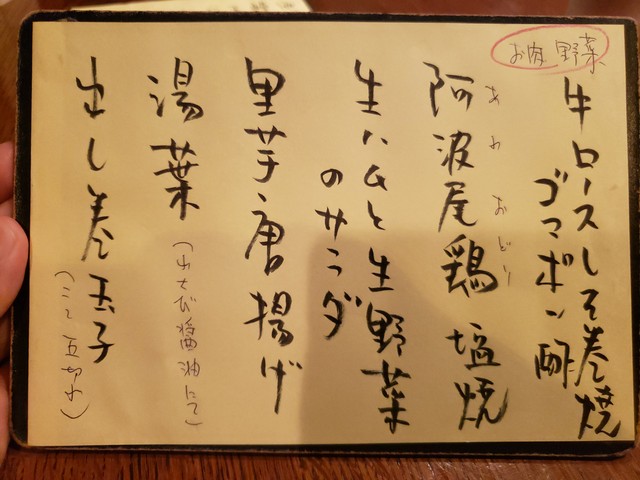 お肉 野菜
牛ロースしそ巻焼
ゴマポン酢
阿波尾鶏塩焼
あわ おどり
生ハムと生野菜
のサラダ
里芋唐揚げ
湯葉
(わさび醤油にて)
出し巻玉子